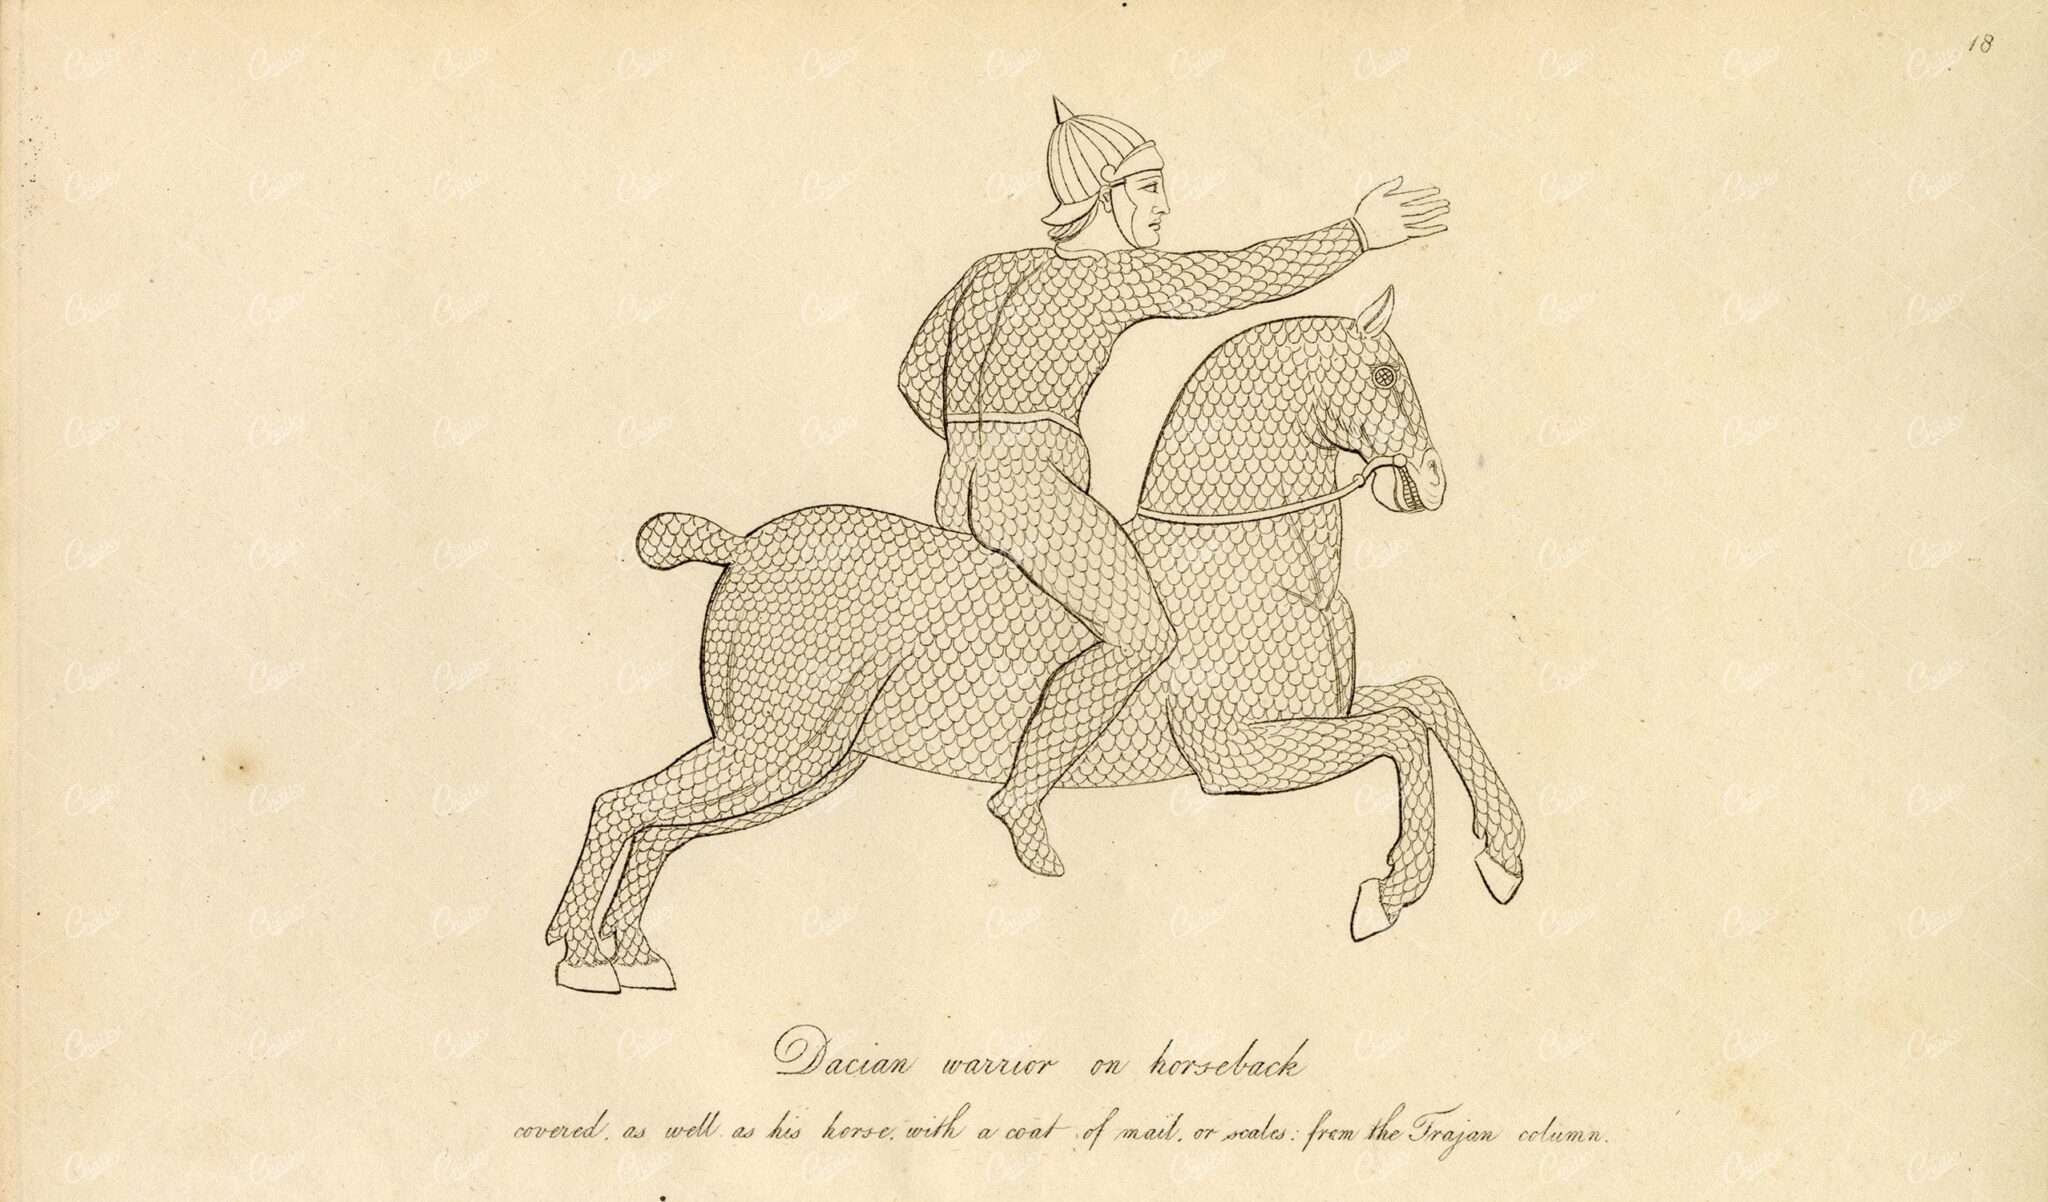 18
Dacian warrior on horseback
covered, as well as his horse, with a coat of mail, or scales: from the Trajan column.